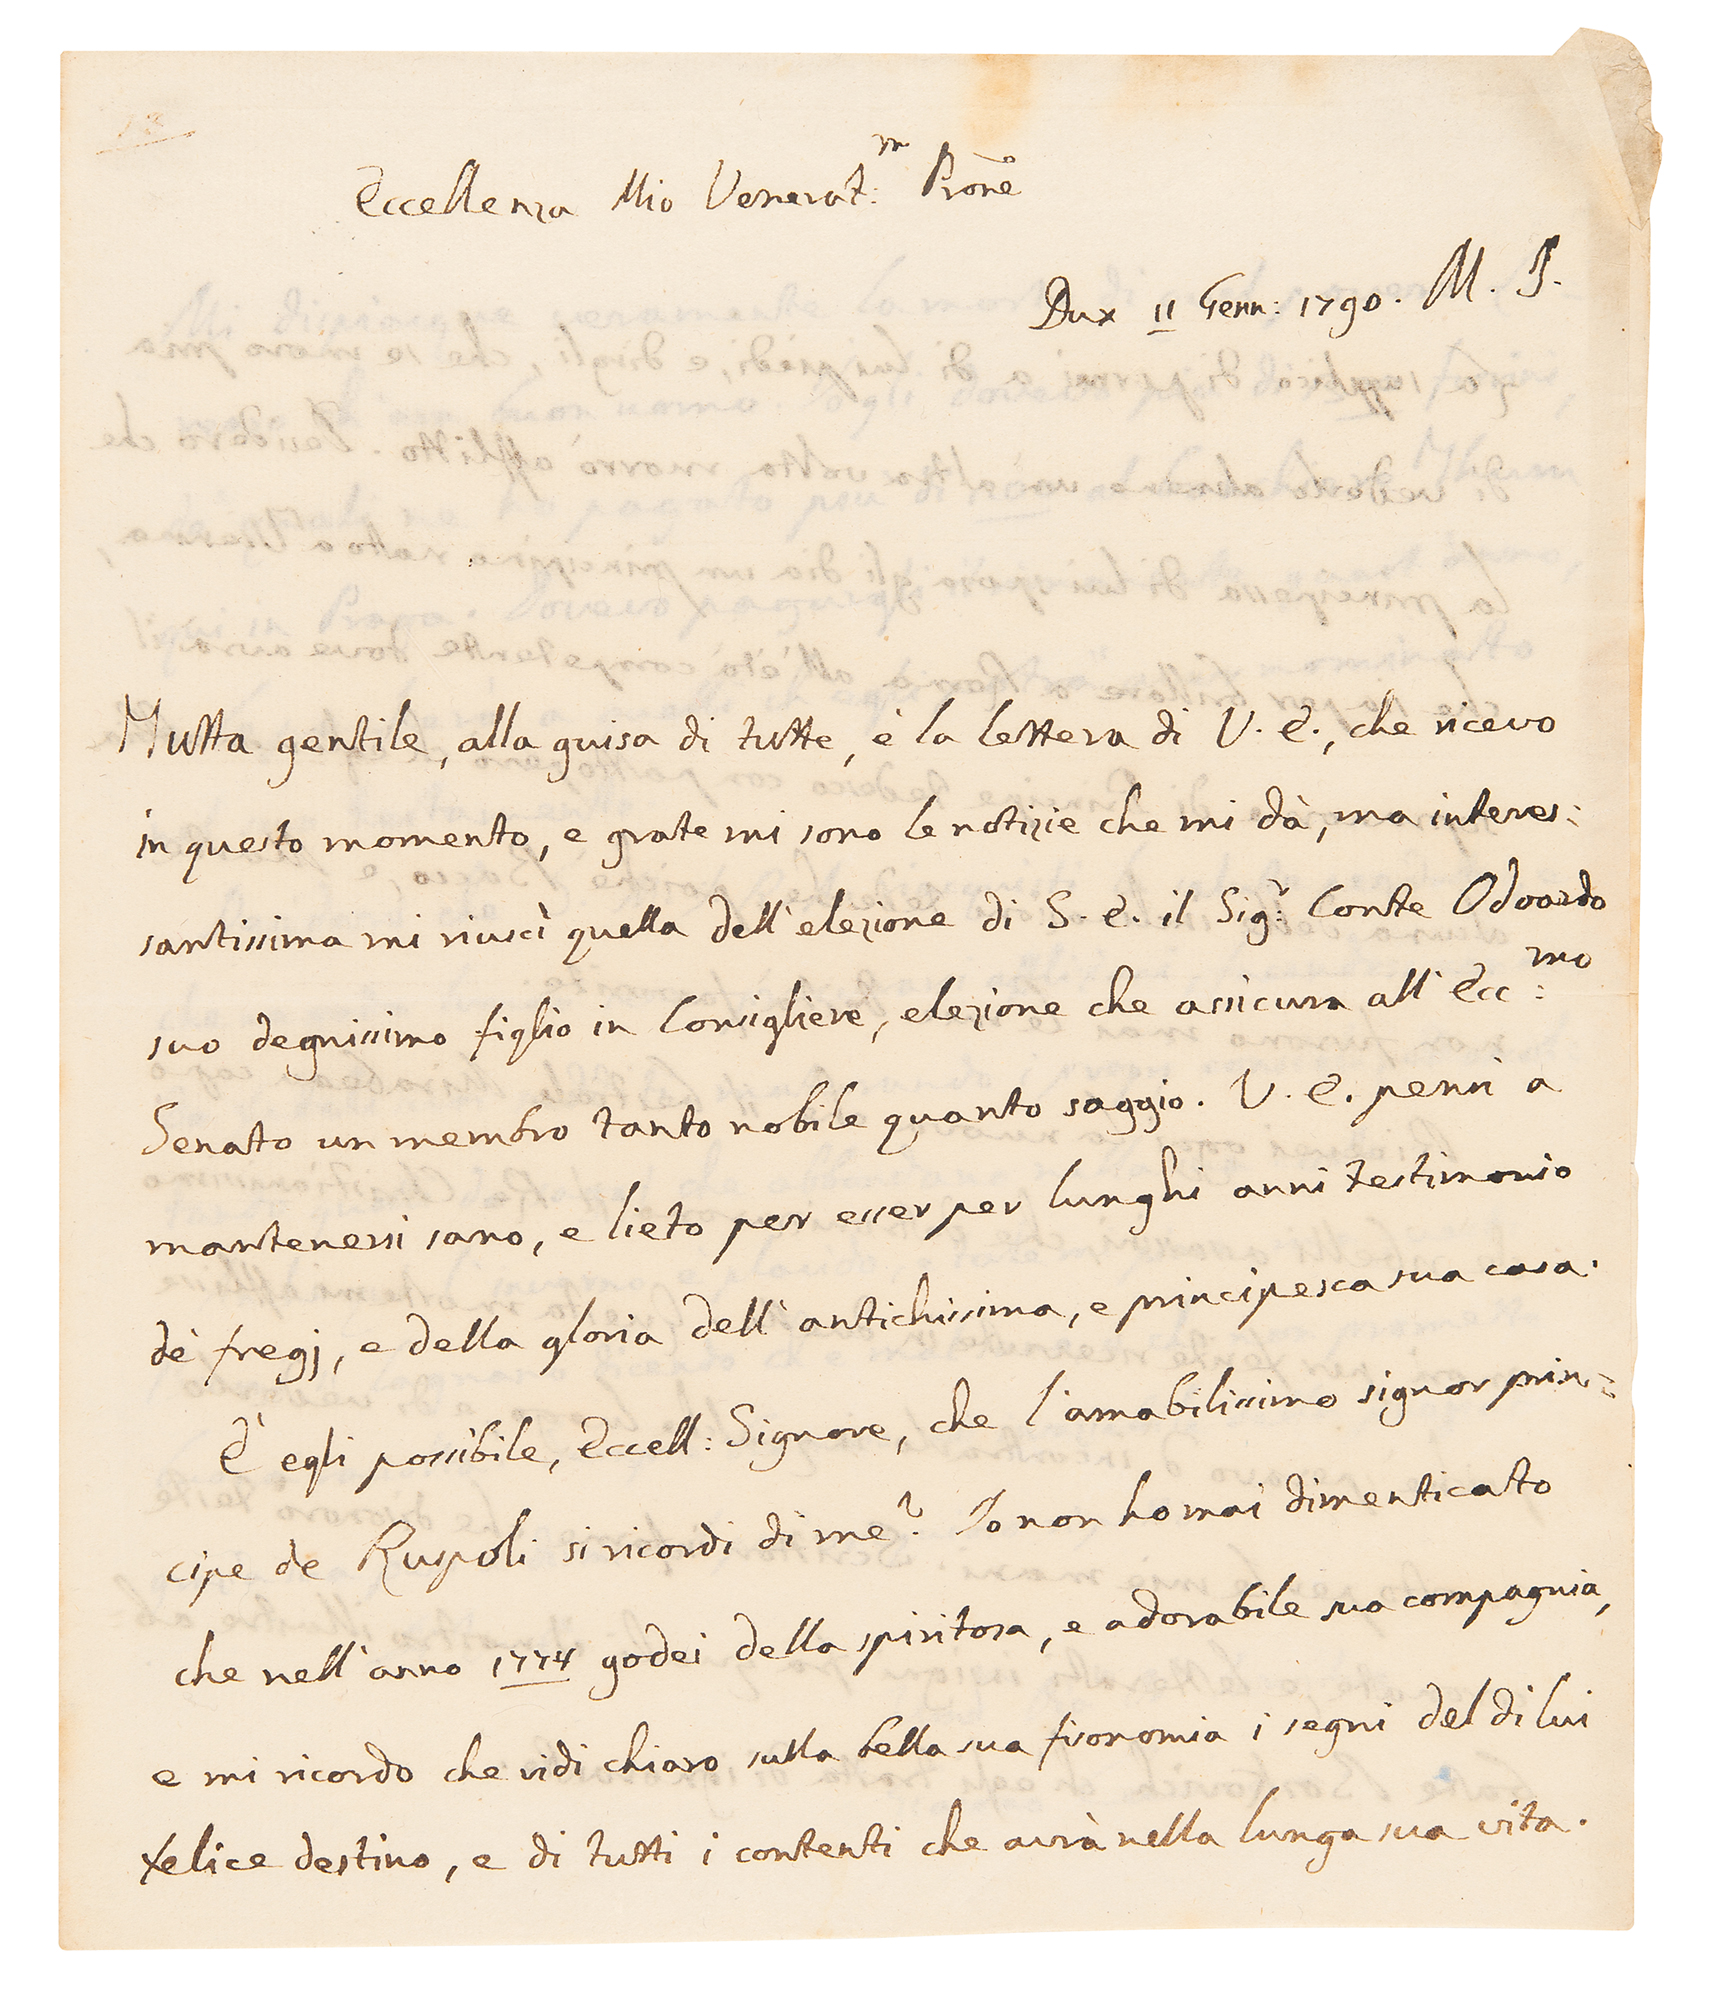 Eccellenza Mio Venerat:m Prone
Dux 11 Genn: 1790. M. P.
Tutta gentile, alla guisa di tutte, è la lettera di V. E., che ricevo
in questo momento, e grate mi sono le notizie che mi dà, ma interes:
santissima mi riuscì quella dell'elezione di S. E. il Sig:r Conte Odoardo
suo degnissimo figlio in Consigliere, elezione che assicura all'Ecc:mo
Senato un membro tanto nobile quanto saggio. V. E. pensi a
mantenersi sano, e lieto per esser per lunghi anni testimonio
de' fregj, e della gloria dell'antichissima, e principesca sua casa.
È egli possibile, Eccell: Signore, che l'amabilissimo signor prin:
cipe de Ruspoli si ricordi di me? Io non ho mai dimenticato
che nell'anno 1774 godei della spiritosa, e adorabile sua compagnia,
e mi ricordo che vidi chiaro sulla bella sua fisonomia i segni del di lui
felice destino, e di tutti i contenti che avrà nella lunga sua vita.